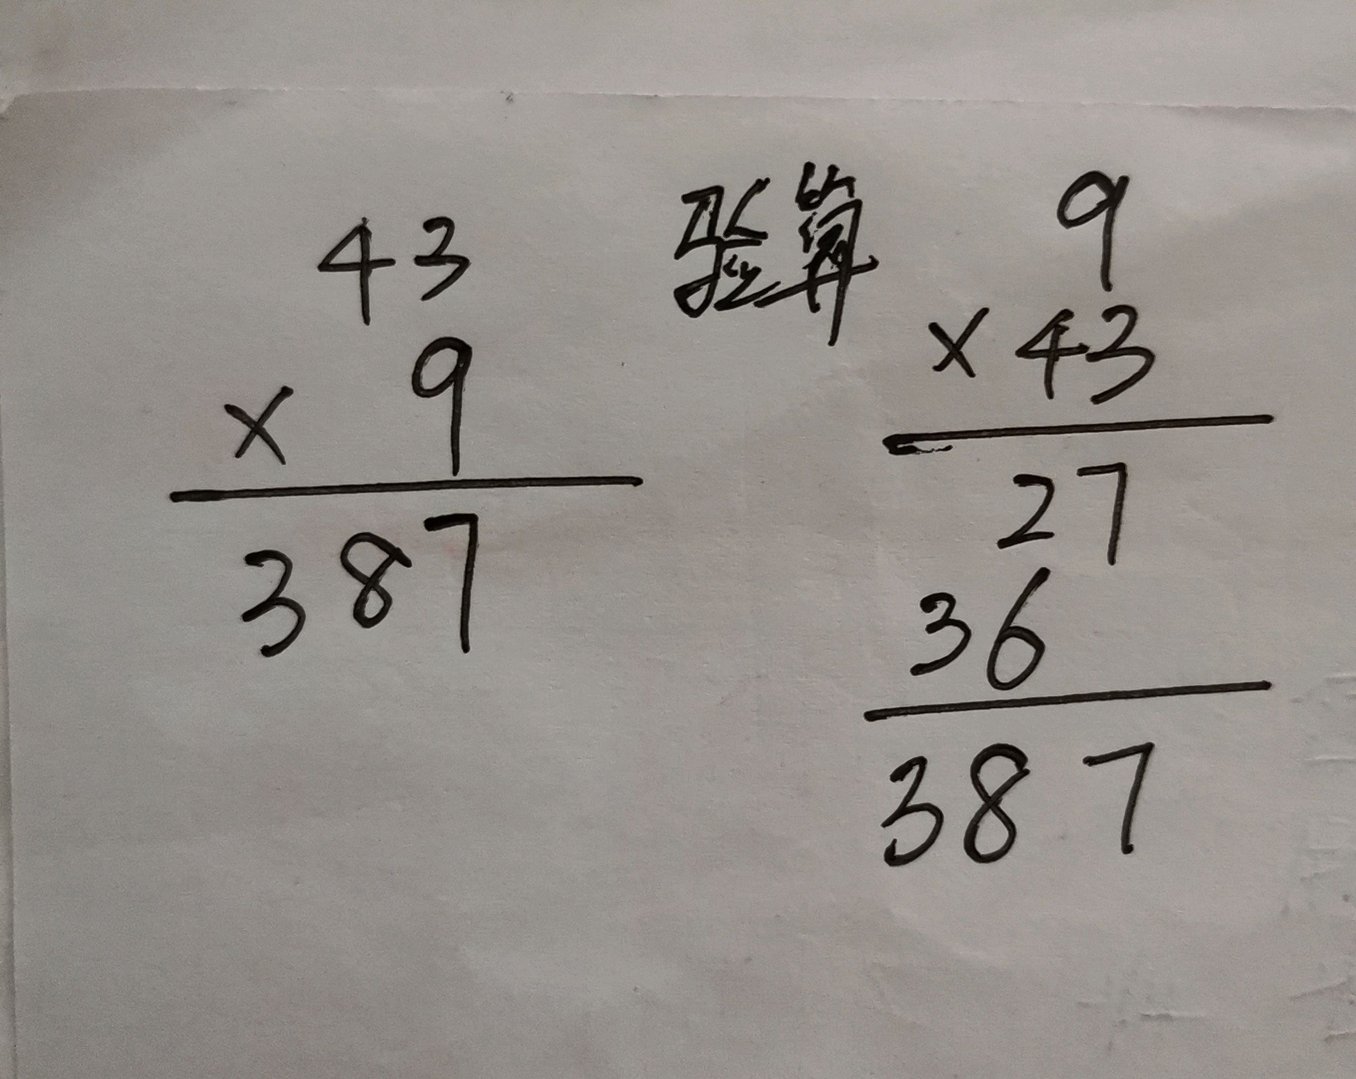 43
× 9
387
验算
9
× 43
27
36
387